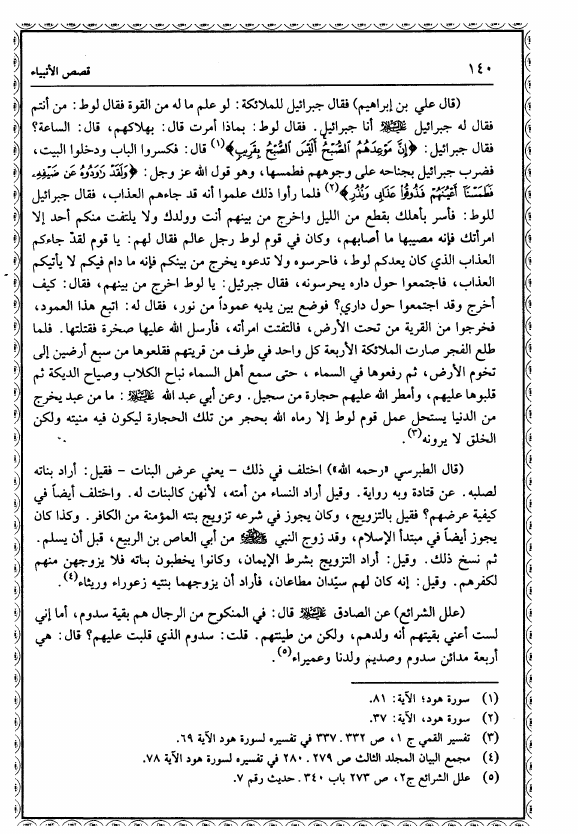 ١٤٠
قصص الأنبياء
(قال علي بن إبراهيم) فقال جبرائيل للملائكة: لو علم ما له من القوة فقال لوط: من أنتم
فقال له جبرائيل ﷺ أنا جبرائيل. فقال لوط: بماذا أمرت قال: بهلاكهم، قال: الساعة؟
فقال جبرائيل: ﴿إِنَّ مَوْعِدَهُمُ الصُّبْحُ أَلَيْسَ الصُّبْحُ بِقَرِيبٍ﴾(١) قال: فكسروا الباب ودخلوا البيت،
فضرب جبرائيل بجناحه على وجوههم فطمسها، وهو قول الله عز وجل: ﴿وَلَقَدْ رَاوَدُوهُ عَن ضَيْفِهِ
فَطَمَسْنَا أَعْيُنَهُمْ فَذُوقُوا عَذَابِي وَنُذُرِ﴾(٢) فلما رأوا ذلك علموا أنه قد جاءهم العذاب، فقال جبرائيل
للوط: فأسر بأهلك بقطع من الليل واخرج من بينهم أنت وولدك ولا يلتفت منكم أحد إلا
امرأتك فإنه مصيبها ما أصابهم، وكان في قوم لوط رجل عالم فقال لهم: يا قوم لقد جاءكم
العذاب الذي كان يعدكم لوط، فاحرسوه ولا تدعوه يخرج من بينكم فإنه ما دام فيكم لا يأتيكم
العذاب، فاجتمعوا حول داره يحرسونه، فقال جبرئيل: يا لوط اخرج من بينهم، فقال: كيف
أخرج وقد اجتمعوا حول داري؟ فوضع بين يديه عموداً من نور، فقال له: اتبع هذا العمود،
فخرجوا من القرية من تحت الأرض، فالتفتت امرأته، فأرسل الله عليها صخرة فقتلتها. فلما
طلع الفجر صارت الملائكة الأربعة كل واحد في طرف من قريتهم فقلعوها من سبع أرضين إلى
تخوم الأرض، ثم رفعوها في السماء ، حتى سمع أهل السماء نباح الكلاب وصياح الديكة ثم
قلبوها عليهم، وأمطر الله عليهم حجارة من سجيل. وعن أبي عبد الله ﷺ: ما من عبد يخرج
من الدنيا يستحل عمل قوم لوط إلا رماه الله بحجر من تلك الحجارة ليكون فيه منيته ولكن
الخلق لا يرونه(٣).
(قال الطبرسي «رحمه الله») اختلف في ذلك - يعني عرض البنات - فقيل: أراد بناته
لصلبه. عن قتادة وبه رواية. وقيل أراد النساء من أمته، لأنهن كالبنات له. واختلف أيضاً في
كيفية عرضهم؟ فقيل بالتزويج، وكان يجوز في شرعه تزويج بنته المؤمنة من الكافر. وكذا كان
يجوز أيضاً في مبتدأ الإسلام، وقد زوج النبي ﷺ من أبي العاص بن الربيع، قبل أن يسلم.
ثم نسخ ذلك. وقيل: أراد التزويج بشرط الإيمان، وكانوا يخطبون بناته فلا يزوجهن منهم
لكفرهم. وقيل: إنه كان لهم سيّدان مطاعان، فأراد أن يزوجهما بنتيه زعوراء وريثاء(٤).
(علل الشرائع) عن الصادق ﷺ قال: في المنكوح من الرجال هم بقية سدوم، أما إني
لست أعني بقيتهم أنه ولدهم، ولكن من طينتهم. قلت: سدوم الذي قلبت عليهم؟ قال: هي
أربعة مدائن سدوم وصديم ولدنا وعميراء(٥).
(١) سورة هود؛ الآية: ٨١.
(٢) سورة هود، الآية: ٣٧.
(٣) تفسير القمي ج ١، ص ٣٣٢ . ٣٣٧ في تفسيره لسورة هود الآية ٦٩.
(٤) مجمع البيان المجلد الثالث ص ٢٧٩ . ٢٨٠ في تفسيره لسورة هود الآية ٧٨.
(٥) علل الشرائع ج٢، ص ٢٧٣ باب ٣٤٠ . حديث رقم ٧.